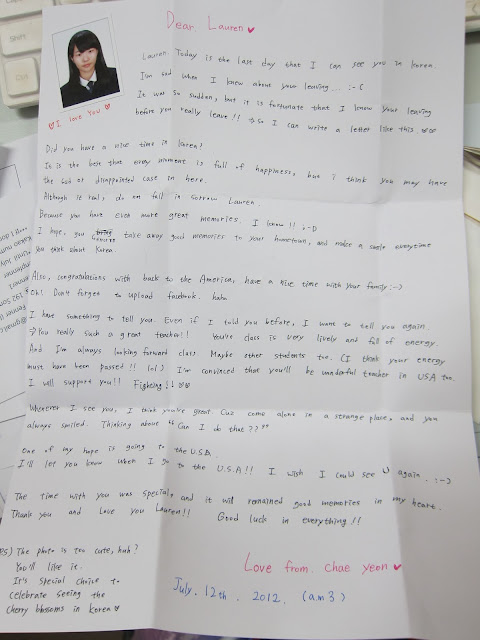 Dear Lauren ♥
Lauren. Today is the last day that I can see you in korea.
I'm sad when I knew about your leaving.... :-(
It was so sudden, but it is fortunate that I know your leaving
before you really leave!! → So I can write a letter like this. ♡♡
♡I love You♡
Did you have a nice time in korea?
It is the best that every moment is full of happiness, but i think you may have
the sad or disappointed case in here.
Although it real, do not fall in sorrow Lauren.
Because you have even more great memories. I know!! :-D
I hope, you take away good memories to your hometown, and make a smile everytime
You think about Korea.
Also, congratulations with back to the America, have a nice time with your family :-)
Oh! Don't forget to upload facebook. haha
I have something to tell you. Even if I told you before, I want to tell you again.
→ You really such a great teacher!! You're class is very lively and full of energy.
And I'm always looking forward class. Maybe other students too. (I think your energy
must have been passed!! lol) I'm convinced that you'll be wonderful teacher in USA too.
I will support you!! Fighting!! ♡♡
Whenever I see you, I think you're great. Cuz come alone in a strange place, and you
always smiled. Thinking about "Can I do that??"
One of my hope is going to the U.S.A.
I'll let you know when I go to the U.S.A!! I wish I could see U again. :-)
The time with you was special, and it will remained good memories in my heart.
Thank you and Love you Lauren!! Good luck in everything!!
PS) The photo is too cute, huh?
You'll like it.
It's special choice to
celebrate seeing the
cherry blossoms in Korea ♡
Love from. chae yeon ♥
July. 12th. 2012. (am3)